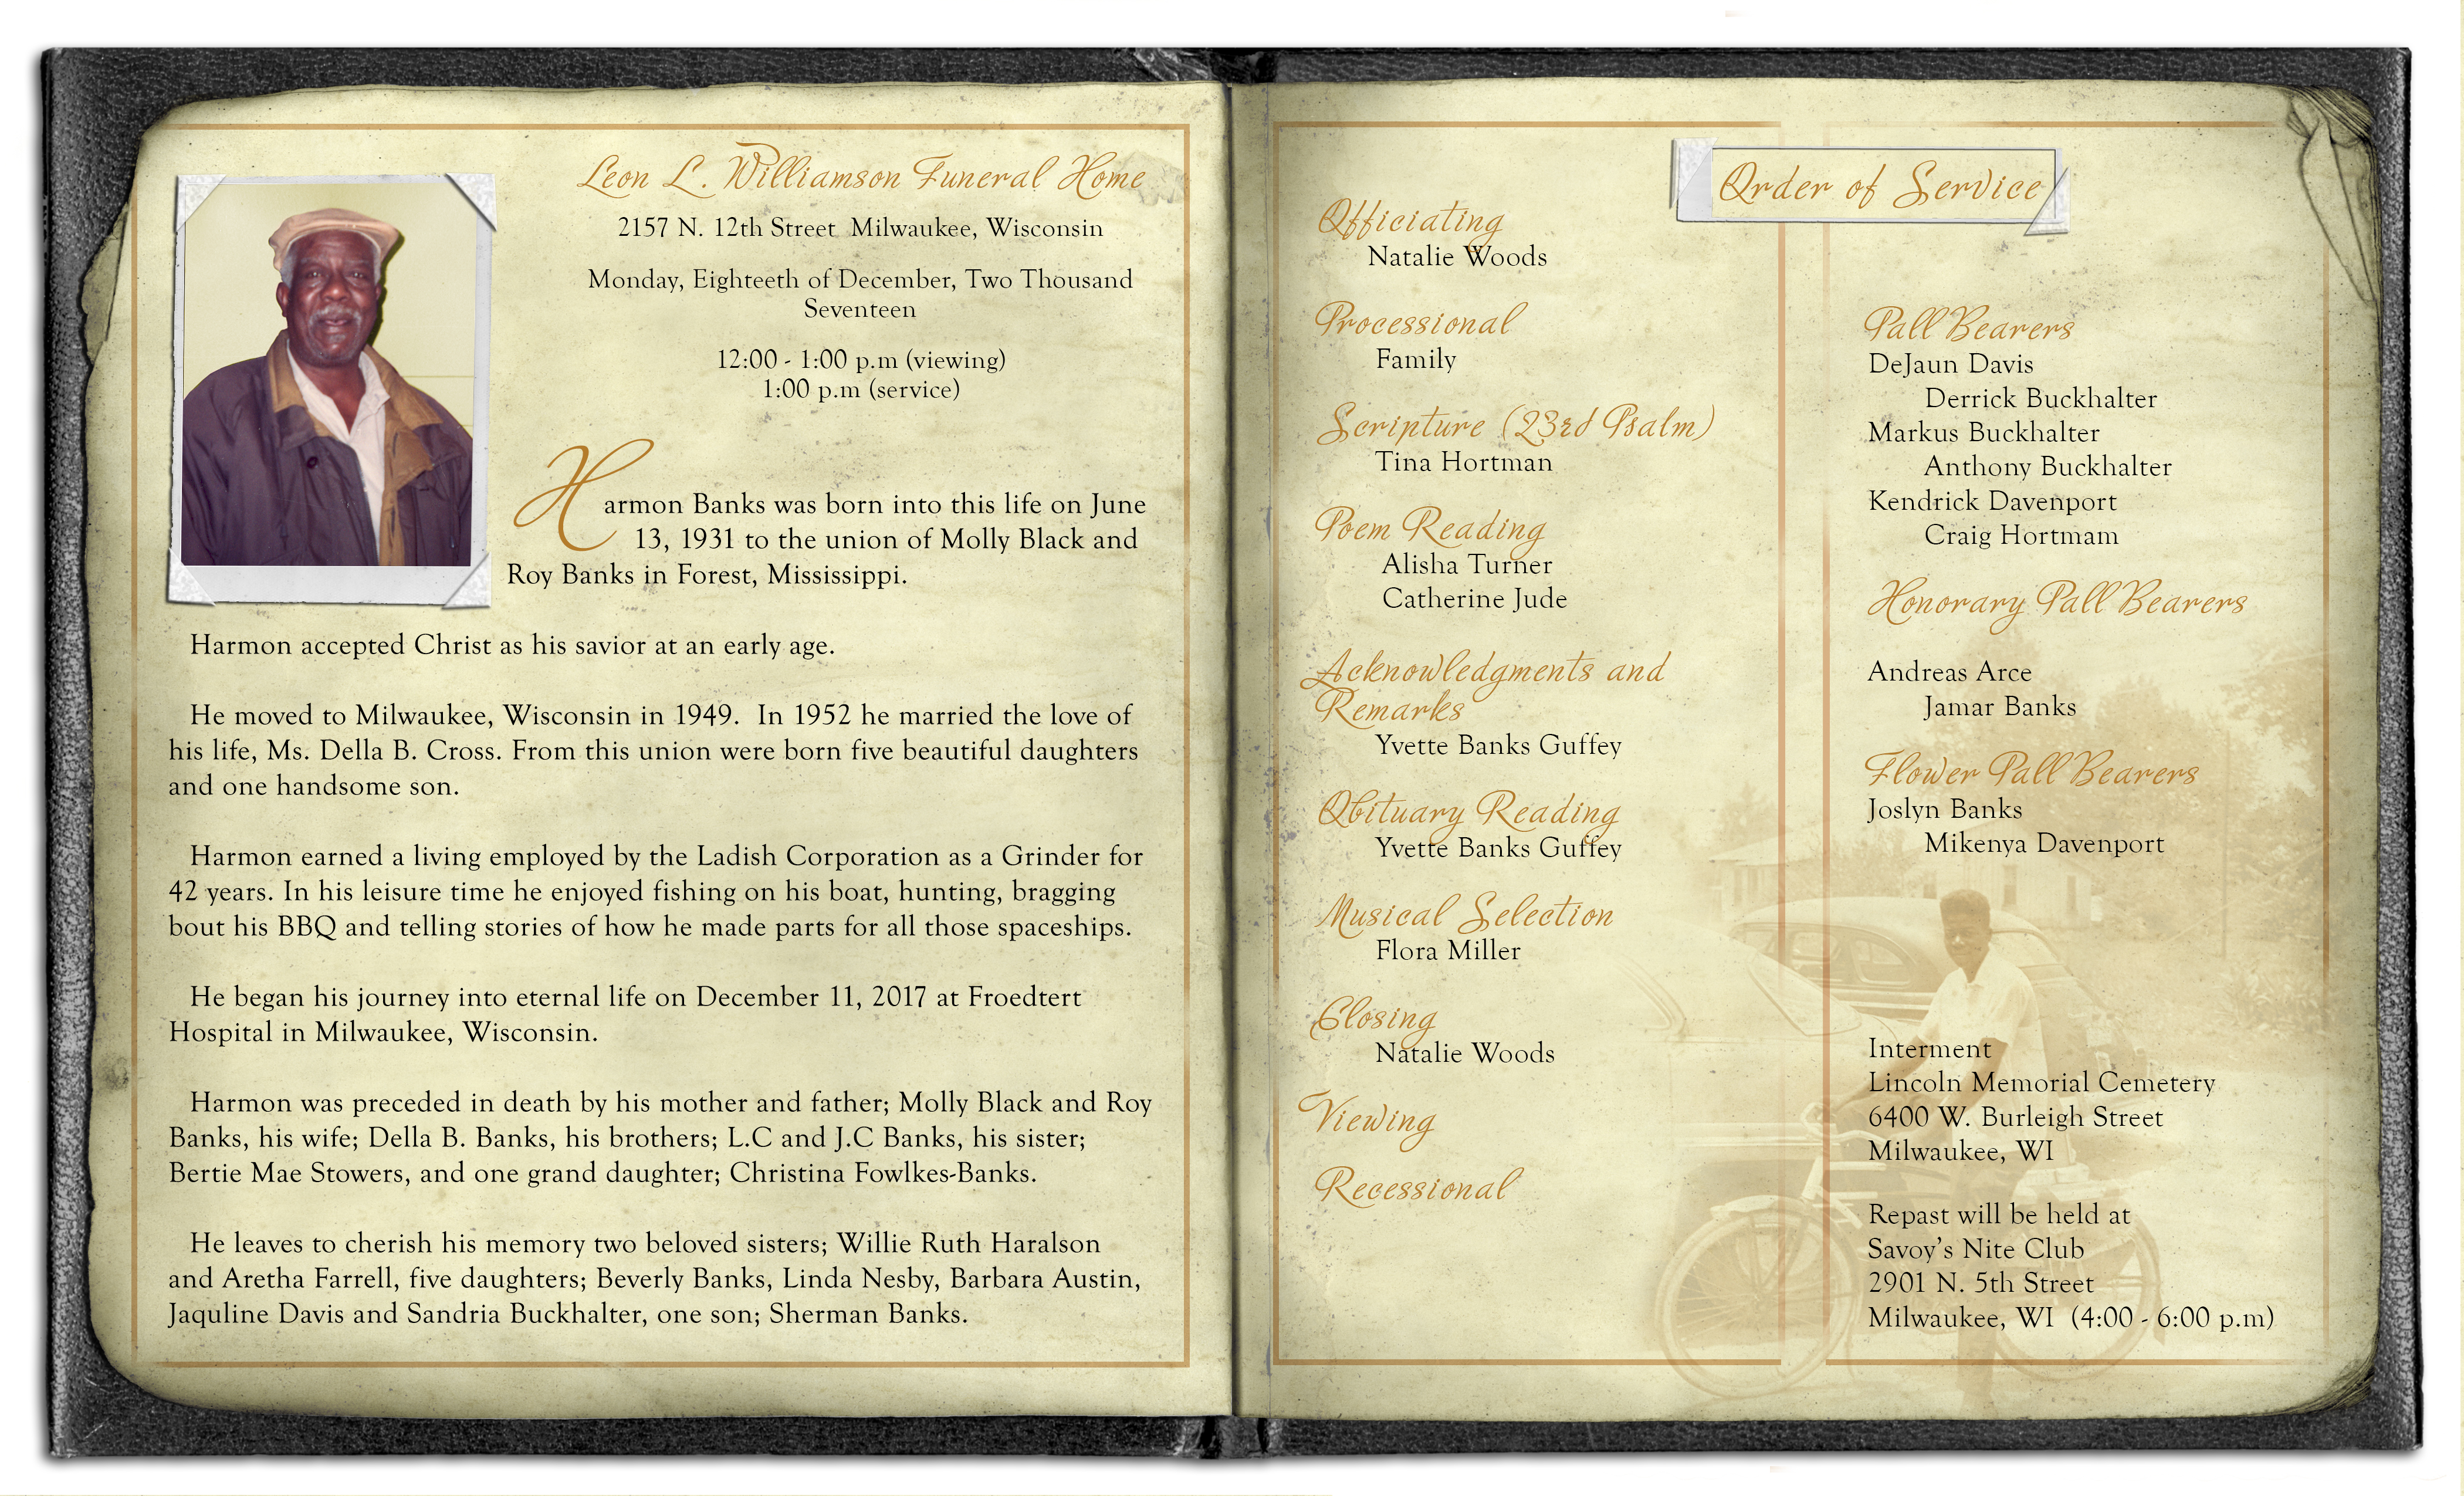 Leon L. Williamson Funeral Home
2157 N. 12th Street  Milwaukee, Wisconsin
Monday, Eighteeth of December, Two Thousand
Seventeen
12:00 - 1:00 p.m (viewing)
1:00 p.m (service)
Harmon Banks was born into this life on June
13, 1931 to the union of Molly Black and
Roy Banks in Forest, Mississippi.
Harmon accepted Christ as his savior at an early age.
He moved to Milwaukee, Wisconsin in 1949.  In 1952 he married the love of
his life, Ms. Della B. Cross. From this union were born five beautiful daughters
and one handsome son.
Harmon earned a living employed by the Ladish Corporation as a Grinder for
42 years. In his leisure time he enjoyed fishing on his boat, hunting, bragging
bout his BBQ and telling stories of how he made parts for all those spaceships.
He began his journey into eternal life on December 11, 2017 at Froedtert
Hospital in Milwaukee, Wisconsin.
Harmon was preceded in death by his mother and father; Molly Black and Roy
Banks, his wife; Della B. Banks, his brothers; L.C and J.C Banks, his sister;
Bertie Mae Stowers, and one grand daughter; Christina Fowlkes-Banks.
He leaves to cherish his memory two beloved sisters; Willie Ruth Haralson
and Aretha Farrell, five daughters; Beverly Banks, Linda Nesby, Barbara Austin,
Jaquline Davis and Sandria Buckhalter, one son; Sherman Banks.
Order of Service
Officiating
Natalie Woods
Processional
Family
Scripture (23rd Psalm)
Tina Hortman
Poem Reading
Alisha Turner
Catherine Jude
Acknowledgments and
Remarks
Yvette Banks Guffey
Obituary Reading
Yvette Banks Guffey
Musical Selection
Flora Miller
Closing
Natalie Woods
Viewing
Recessional
Pall Bearers
DeJaun Davis
Derrick Buckhalter
Markus Buckhalter
Anthony Buckhalter
Kendrick Davenport
Craig Hortmam
Honorary Pall Bearers
Andreas Arce
Jamar Banks
Flower Pall Bearers
Joslyn Banks
Mikenya Davenport
Interment
Lincoln Memorial Cemetery
6400 W. Burleigh Street
Milwaukee, WI
Repast will be held at
Savoy's Nite Club
2901 N. 5th Street
Milwaukee, WI  (4:00 - 6:00 p.m)